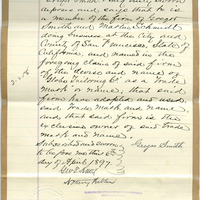 deposes and says that he is
a member of the firm of Greger
Smith and Martin Schmidt
doing business at the City and
County of San Francisco, State of
California, and named in the
foregoing claim of said firm
of the device and name of
as a Trade
mark or name, that said
firm have adopted and used
said Trade mark and name
and that said firm is the
exclusive owner of said Trade
mark and name.
Subscribed and sworn
to before me this
day of April 1897.
Smith